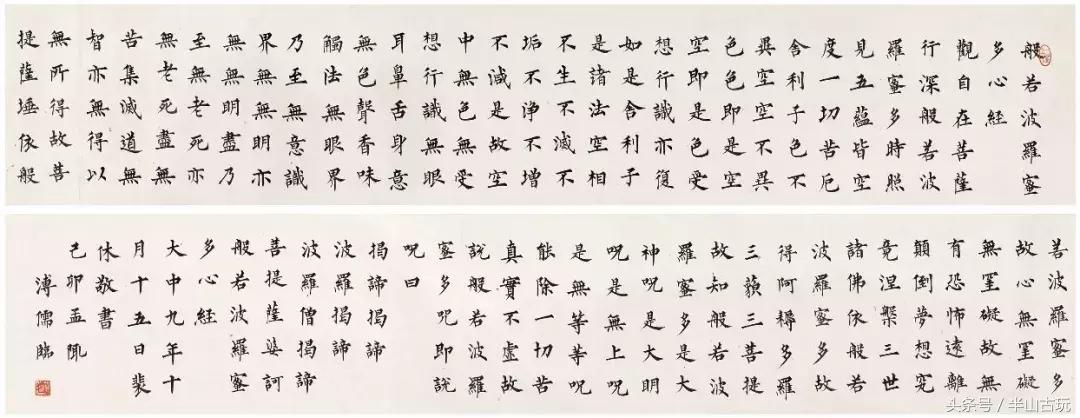 般若波羅蜜
多心經
觀自在菩薩
行深般若波
羅蜜多時照
見五蘊皆空
度一切苦厄
舍利子色不
異空空不異
色色即是空
空即是色受
想行識亦復
如是舍利子
是諸法空相
不生不滅不
垢不淨不增
不減是故空
中無色無受
想行識無眼
耳鼻舌身意
無色聲香味
觸法無眼界
乃至無意識
界無無明亦
無無明盡乃
至無老死亦
無老死盡無
苦集滅道無
智亦無得以
無所得故菩
提薩埵依般
若波羅蜜多
故心無罣礙
無罣礙故無
有恐怖遠離
顛倒夢想究
竟涅槃三世
諸佛依般若
波羅蜜多故
得阿耨多羅
三藐三菩提
故知般若波
羅蜜多是大
神呪是大明
呪是無上呪
是無等等呪
能除一切苦
真實不虛故
說般若波羅
蜜多呪即說
呪曰
揭諦揭諦
波羅揭諦
波羅僧揭諦
菩提薩婆訶
般若波羅蜜
多心經
大中九年十
月十五日裴
休敬書
己卯孟陬
溥儒臨
头条号 / 半山古玩